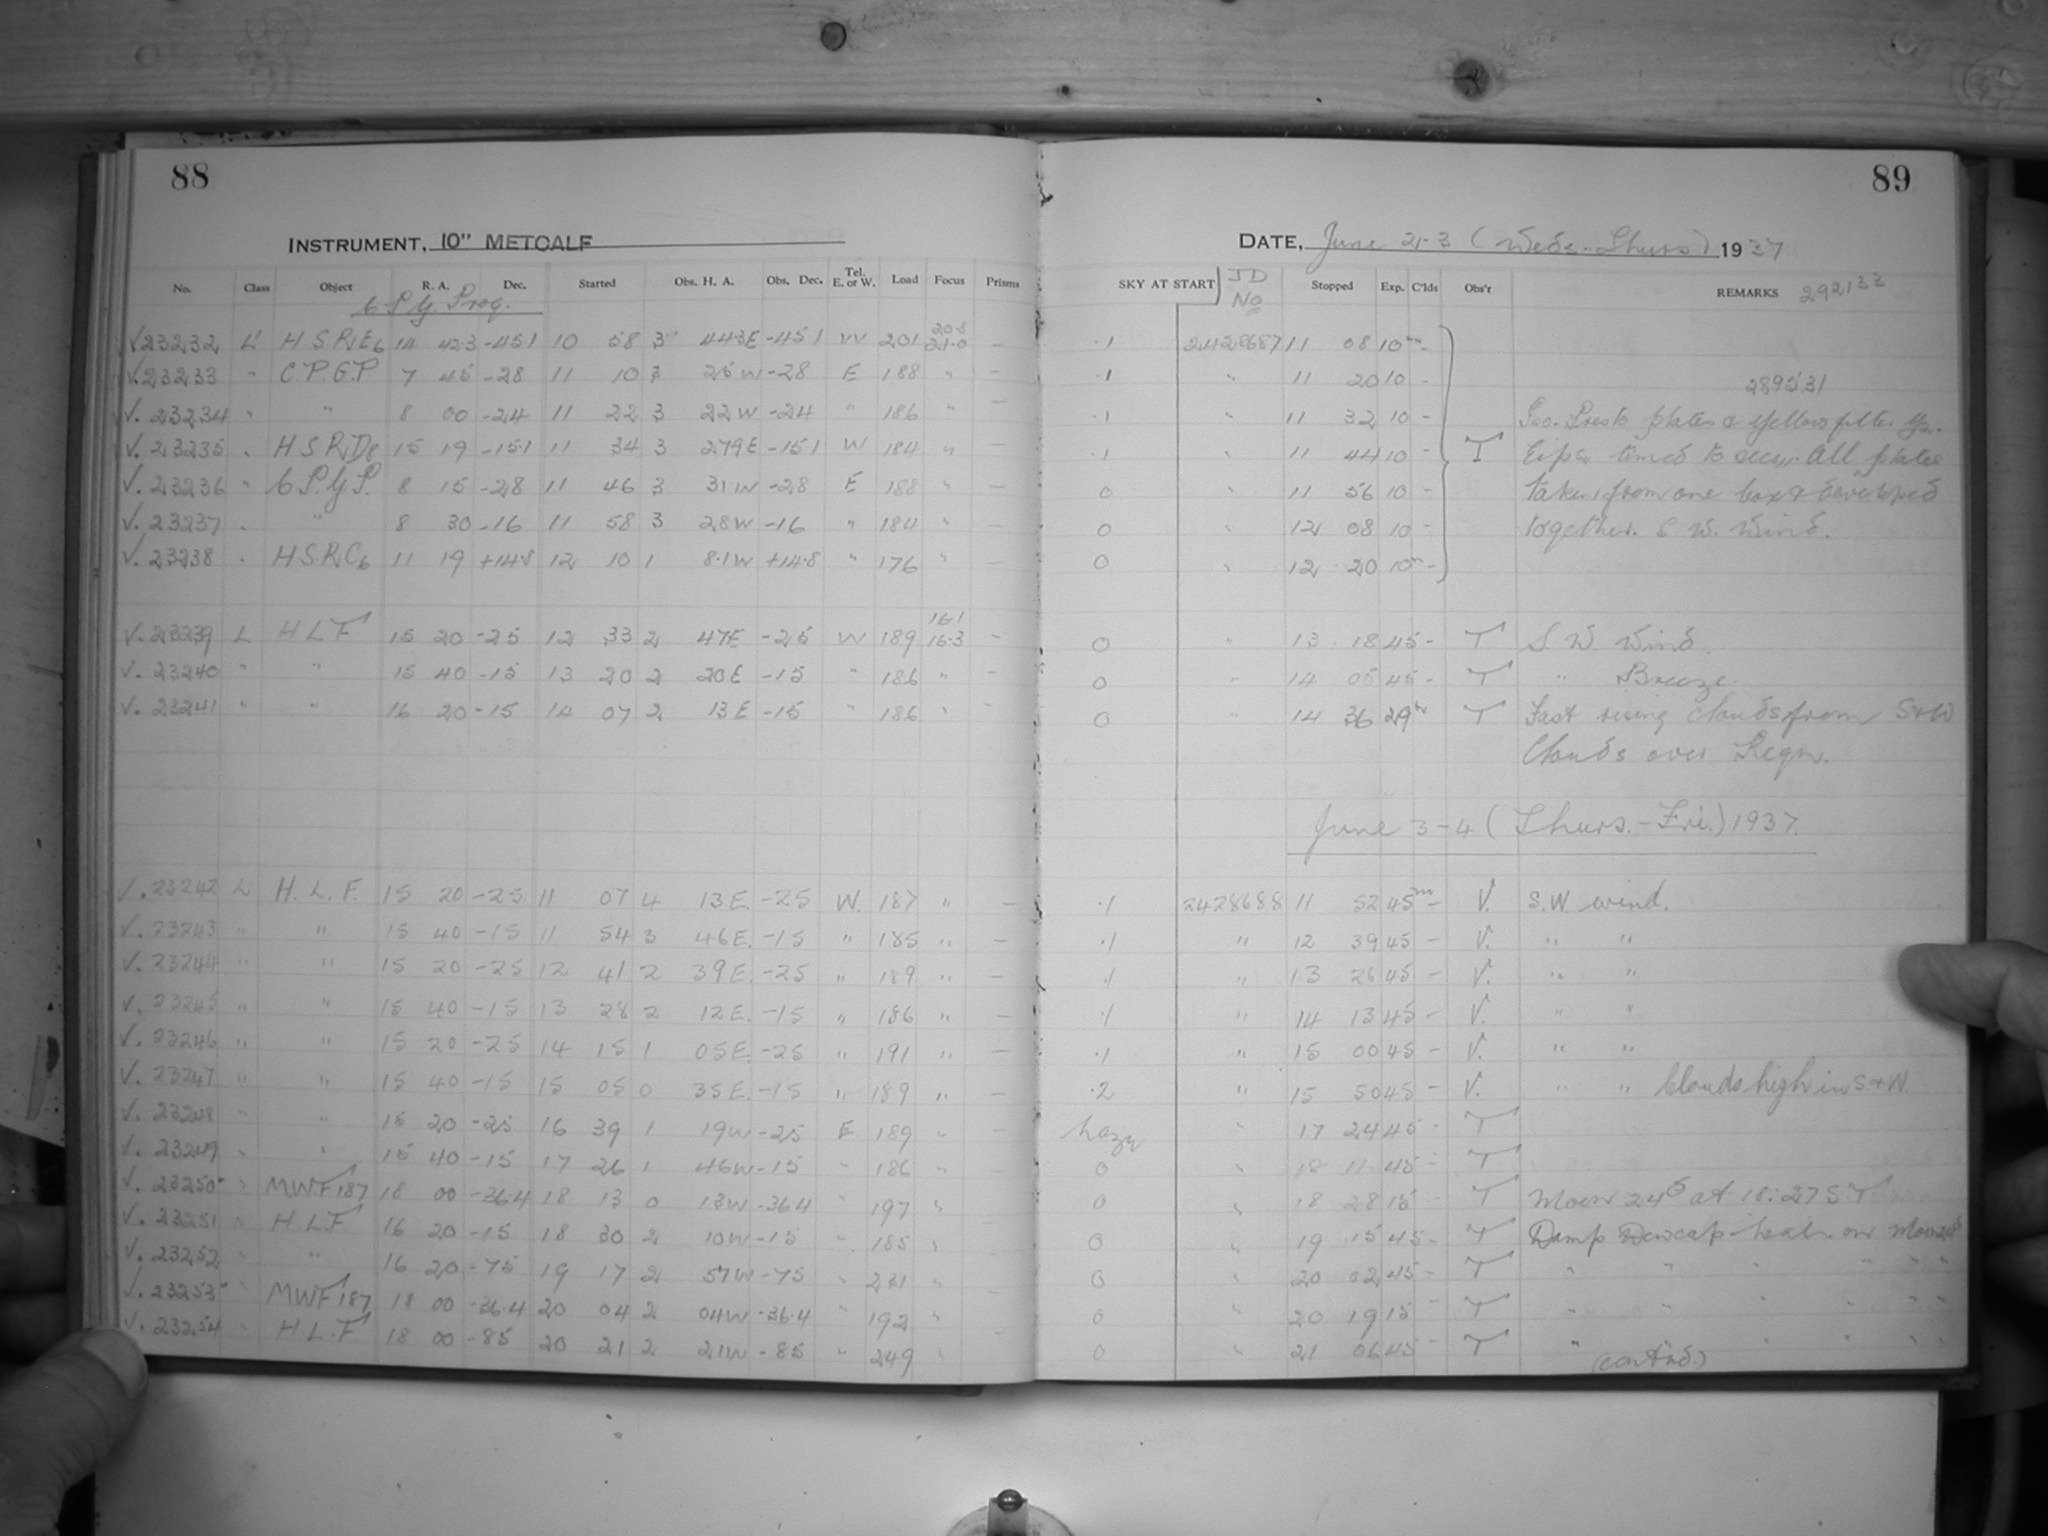 88
INSTRUMENT, 10" METCALF
No. Class Object R. A. Dec. Started Obs. H. A. Obs. Dec. Tel. E. or W. Load Focus Prisms
C.P.G. Prog.
V23232 L H S R E6 14 42.3 -45.1 10 58 3 443E -45.1 W 201 20.8 21.0 -
V.23233 " C.P.G.P 7 45 -28 11 10 3 25W -28 E 188 " -
V. 23234 " " 8 00 -24 11 22 3 22W -24 " 186 " -
V. 23235 " H S R D8 15 19 -15.1 11 34 3 279E -15.1 W 184 "
V. 23236 " C.P.G.P. 8 15 -28 11 46 3 31W -28 E 188 " -
V. 23237 " " 8 30 -16 11 58 3 28W -16 " 184 " -
V. 23238 " H S R C6 11 19 +14.8 12 10 1 8.1W +14.8 " 176 " -
V. 23239 L H L F 15 20 -25 12 33 2 47E -25 W 189 16.1 16.3 -
V. 23240 " " 15 40 -15 13 20 2 20E -15 " 186 " -
V. 23241 " " 16 20 -15 14 07 2 13E -15 " 186 " -
V. 23242 L H. L. F. 15 20 -25 11 07 4 13E. -25 W. 187 " -
V. 23243 " " 15 40 -15 11 54 3 46E. -15 " 185 " -
V. 23244 " " 15 20 -25 12 41 2 39E. -25 " 189 " -
V. 23245 " " 15 40 -15 13 28 2 12E. -15 " 186 " -
V. 23246 " " 15 20 -25 14 15 1 05E. -25 " 191 " -
V. 23247 " " 15 40 -15 15 05 0 35E. -15 " 189 " -
V. 23248 " " 15 20 -25 16 39 1 19W -25 E 189 " -
V. 23249 " " 15 40 -15 17 26 1 46W -15 " 186 " -
V. 23250 " MWF187 18 00 -36.4 18 13 0 13W -36.4 " 197 "
V. 23251 " H.L.F. 16 20 -15 18 30 2 10W -15 " 185 " -
V. 23252 " " 16 20 -75 19 17 2 57W -75 " 231 " -
V. 23253 " MWF187 18 00 -36.4 20 04 2 04W -36.4 " 192 "
V. 23254 " H L. F 18 00 -85 20 21 2 21W -85 " 249 " -
89
DATE, June 2-3 (Weds-Thurs) 1937
SKY AT START JD No Stopped Exp. C'lds Obs'r REMARKS 292133
.1 2428687 11 08 10m -
.1 " 11 20 10 - 289531
.1 " 11 32 10 - Presto plates & yellow filter
.1 " 11 44 10 - T Exps. timed to secs. All plates
0 " 11 56 10 - taken from one box & developed
0 " 12 08 10 - together. S W. Wind.
0 " 12 20 10m -
0 " 13 18 45 - T S. W. Wind.
0 " 14 05 45 - T " Breeze.
0 " 14 36 29m T Fast rising clouds from S & W
Clouds over Regn.
June 3-4 (Thurs.-Fri.) 1937.
.1 2428688 11 52 45m - V. S.W. wind.
.1 " 12 39 45 - V. " "
.1 " 13 26 45 - V. " "
.1 " 14 13 45 - V. " "
.1 " 15 00 45 - V. " "
.2 " 15 50 45 - V. " " Clouds high in S. & W.
hazy " 17 24 45 - T
0 " 18 11 45 - T
0 " 18 28 15 - T Moon 24d at 18:27 S T
0 " 19 15 45 - T Damp Dewcap heat on Moon
0 " 20 02 45 - T " " " " "
0 " 20 19 15 - T " " " " "
0 " 21 06 45 - T " " " " "
(contnd.)